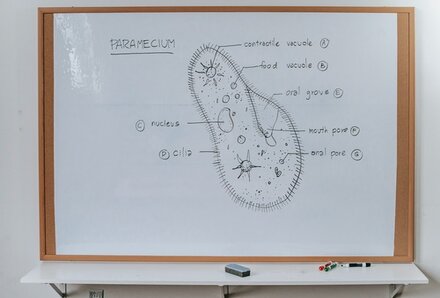 PARAMECIUM
contractile vacuole A
food vacuole B
oral grove E
nucleus C
mouth pore F
cilia D
anal pore G